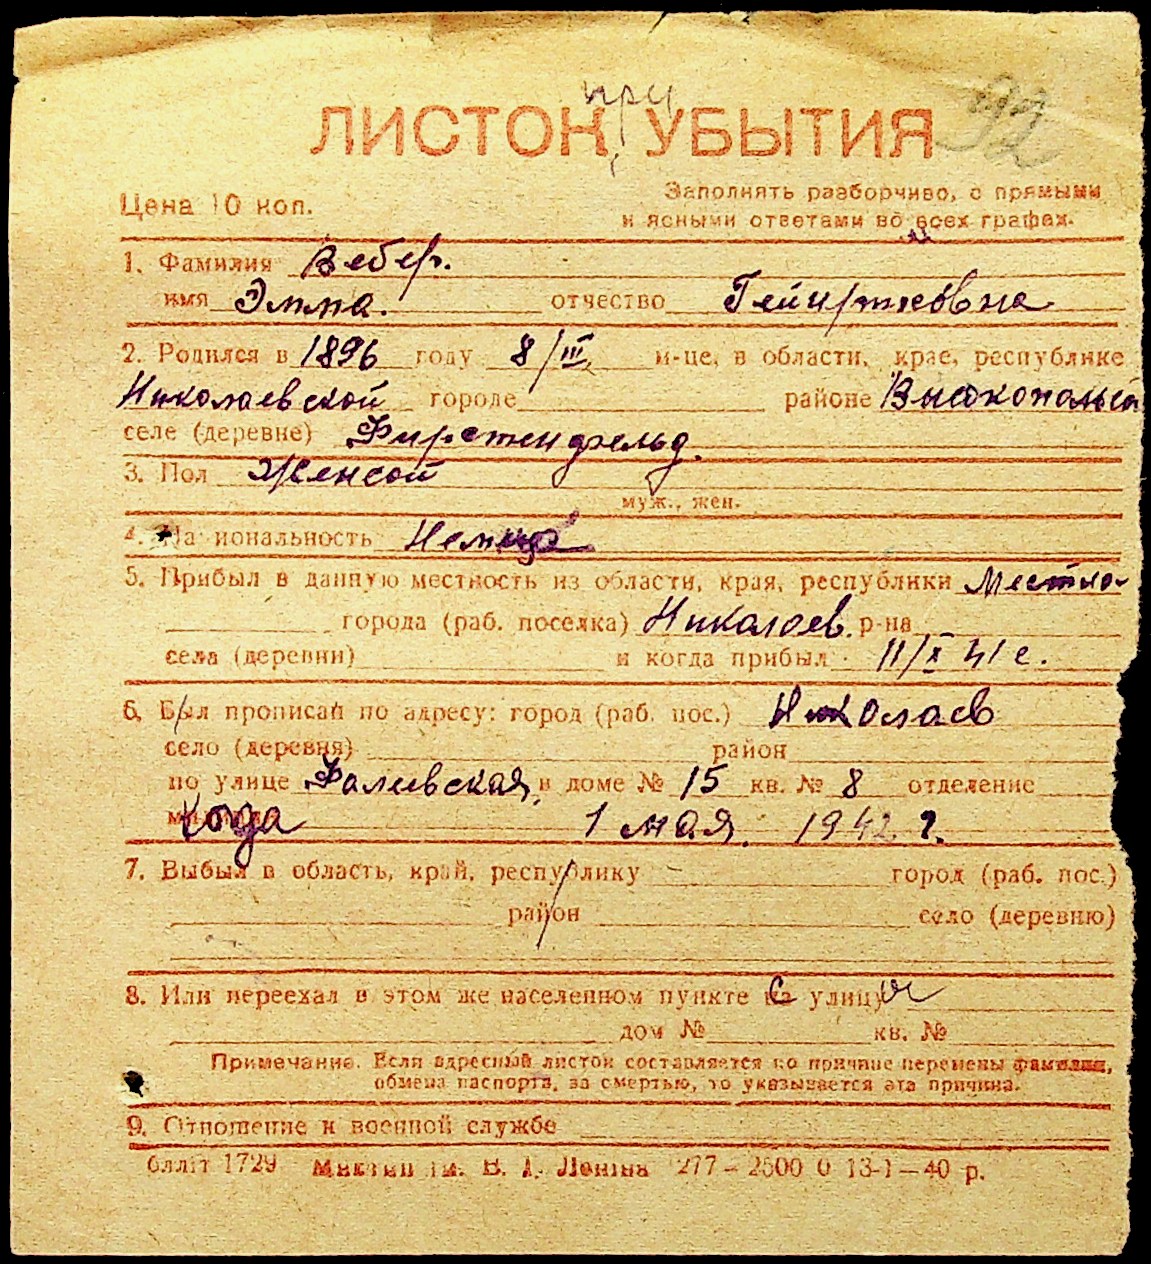 при
ЛИСТОК УБЫТИЯ 92
Цена 10 коп. Заполнять разборчиво, с прямыми
и ясными ответами во всех графах.
1. Фамилия Вебер.
имя Эмма. отчество
2. Родился в 1896 году 8/III м-це, в области, крае, республике
Николаевской городе районе
селе (деревне) Фирстенфельд.
3. Пол Женской
муж., жен.
4. Национальность Немка
5. Прибыл в данную местность из области, края, республики Местно-
города (раб. поселка) Николаев. р-на
села (деревни) и когда прибыл 11/X 41 г.
6. Был прописан по адресу: город (раб. пос.) Николаев
село (деревня) район
по улице Фалиевская, в доме № 15 кв. № 8 отделение
Когда 1 мая. 1942 г.
7. Выбыл в область, край, республику город (раб. пос.)
район село (деревню)
8. Или переехал в этом же населенном пункте с улицы
дом № кв. №
Примечание. Если адресный листок составляется по причине перемены фамилии,
обмена паспорта, за смертью, то указывается эта причина.
9. Отношение к военной службе
1729 В. І. Леніна 277—2500 0 13-1—40 р.